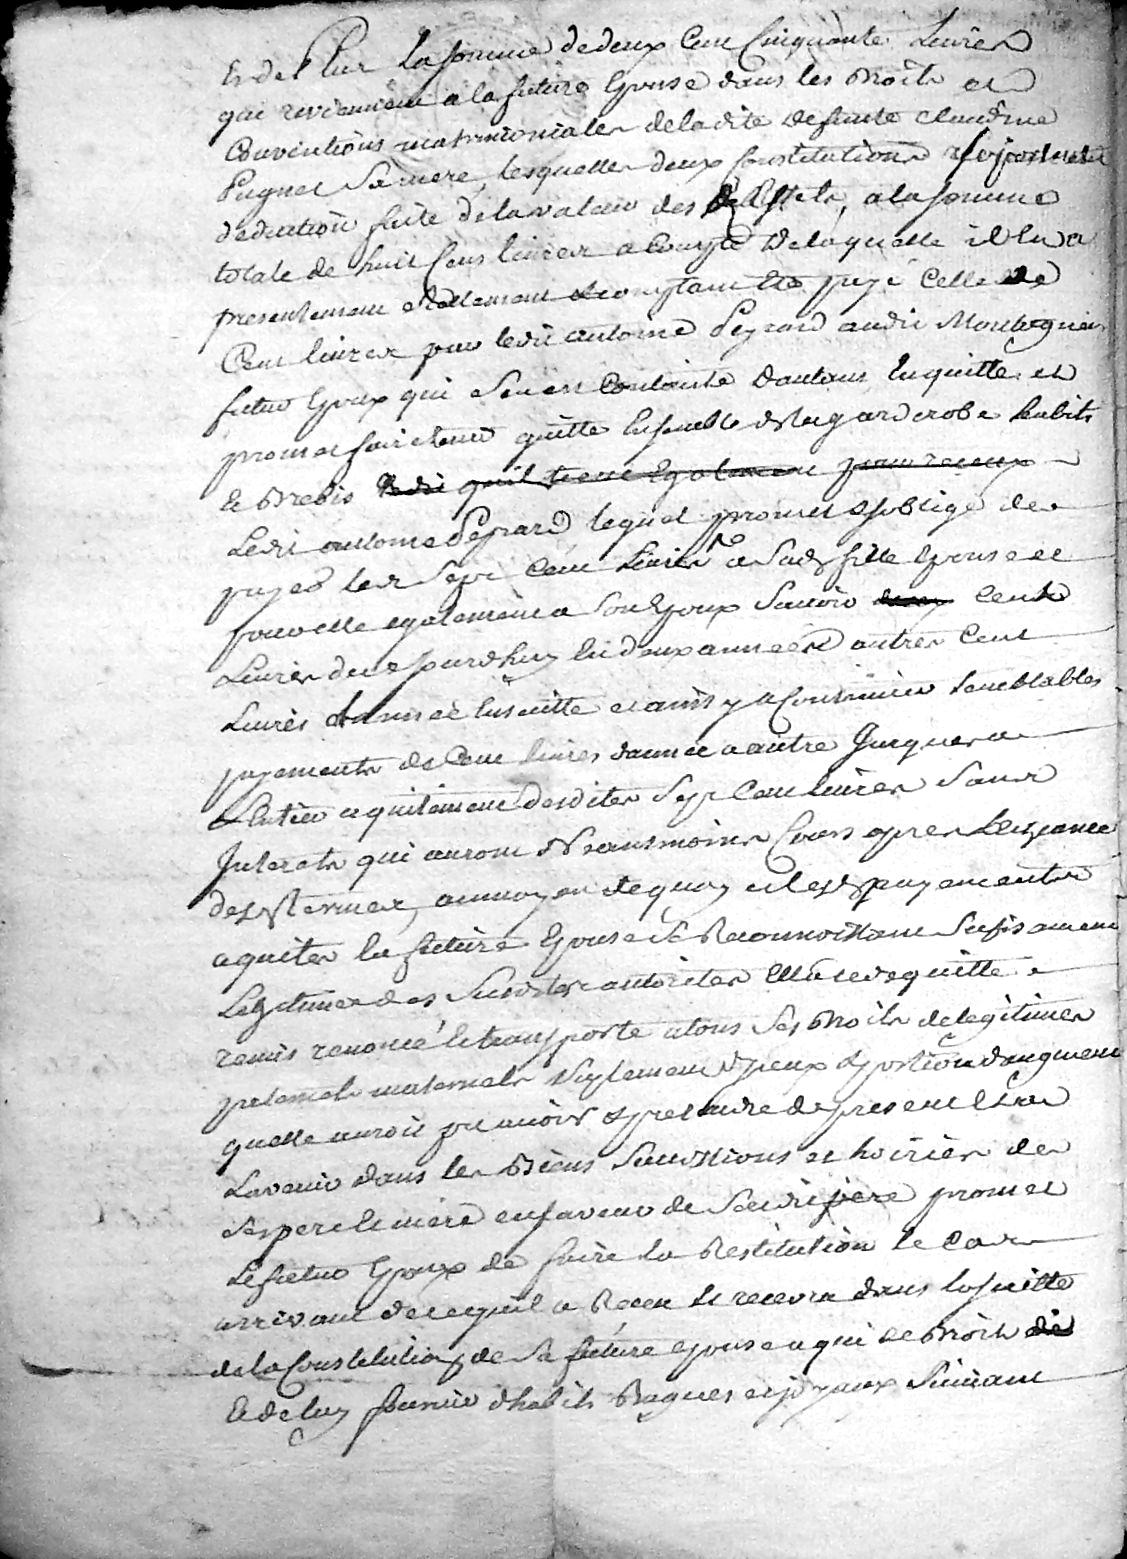 Et de Plus la somme de deux Cent Cinquante Livres
qui reviennent a la future Epouse dans les Droits et
Conventions matrimoniales de ladite deffunte Claudine
Pugnet Sa mere, lesquelles deux Constitutions
deduction faite de la valeur des effets, a la somme
totale de huit Cens livres a Compte de laquelle il en a
presentement reellement comptant payé Celle de
Cent livres par ledit antoine Peyrard audit Montagnier
futur Epoux qui Sen est Contenté dautant En quitte et
promet faire tenir quitte Ensemble de la garderobe habits
Et Brebis qu'il tient Egalement pour receux
Ledit antoine Peyrard lequel promet et soblige de
payer les Sept Cent Livres a Sad. fille Epouse et
pour elle egalement a Son Epoux Savoir Cent
Livres dece jourdhuy En deux années autres Cent
Livres lannée Ensuitte et ainsy a Continuer Semblables
payements de Cent livres dannée a autre Jusques a
Entier aquitement desdites Sept Cent livres Sans
Interets qui auront Neansmoins Cours apres Lecheance
desd. termes, au moyen dequoy et lesd. payements
aquités la future Epouse Se Reconnoissant Sufisamment
Legitimée des Susdites autorités Elle cede quitte
remis renoncé et transporte a tous Ses Droits de legitimes
paternels maternels Suplement dyceux et portion daugment
quelle auroit pu avoir et pretendre de present Et a
Lavenir dans les Biens Successions et hoiries de
Ses pere et mere en faveur de Sondit pere promet
Le futur Epoux de faire la Restitution le Cas
arrivant de ce quil a Receu et recevra dans la suitte
de la Constitution de Sa future epouse a qui de Droit
Et de luy fournir dhabits Bagues et joyaux Suivant